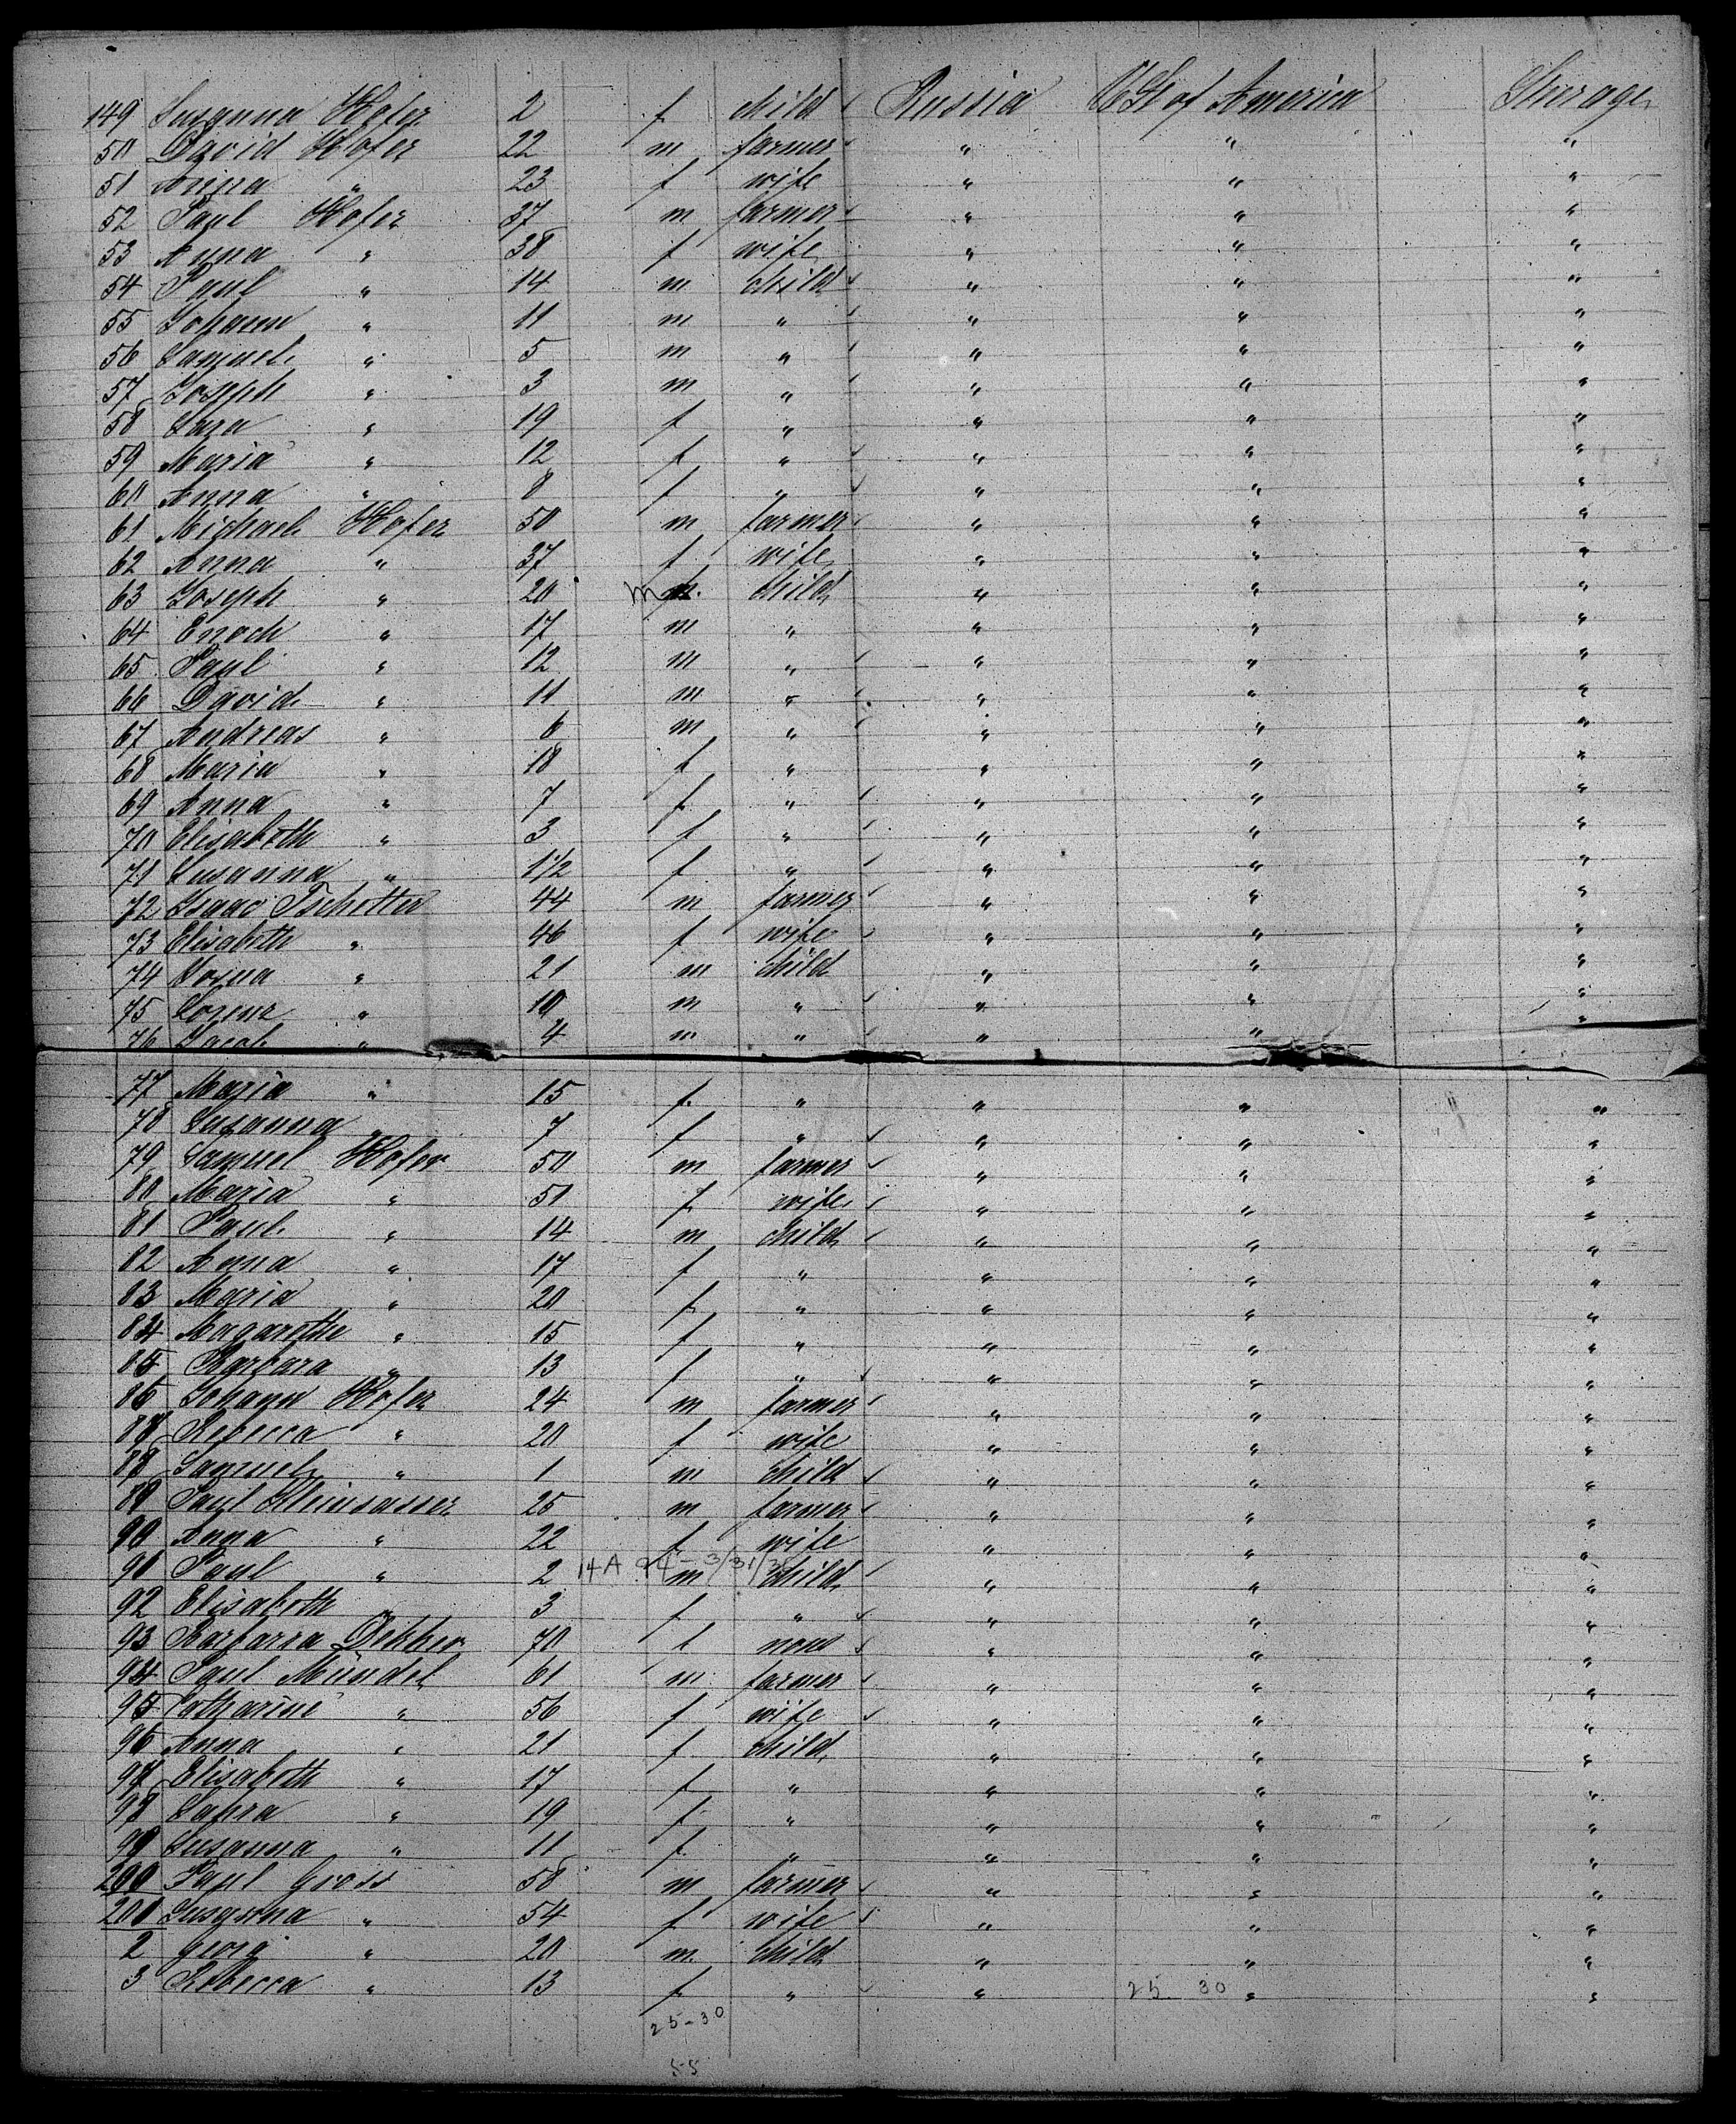 149 Susanna Hofer 2 f child Russia USt of America Sturage
50 David Hofer 22 m farmer " " "
51 Anna " 23 f wife " " "
52 Paul Hofer 37 m farmer " " "
53 Anna " 38 f wife " " "
54 Paul " 14 m child " " "
55 Johann " 11 m " " " "
56 Samuel " 5 m " " " "
57 Joseph " 3 m " " " "
58 Sara " 19 f " " " "
59 Maria " 12 f " " " "
60 Anna " 8 f " " " "
61 Michael Hofer 50 m farmer " " "
62 Anna " 37 f wife " " "
63 Joseph " 20 m child " " "
64 Enoch " 17 m " " " "
65 Paul " 12 m " " " "
66 David " 11 m " " " "
67 Andreas " 6 m " " " "
68 Maria " 18 f " " " "
69 Anna " 7 f " " " "
70 Elisabeth " 3 f " " " "
71 Susanna " 1 1/2 f " " " "
72 Isaac Tschetter 44 m farmer " " "
73 Elisabeth " 46 f wife " " "
74 " 21 m child " " "
75 Lorenz " 10 m " " " "
76 Jacob " 4 m " " " "
77 Maria " 15 f " " " "
78 Susanna " 7 f " " " "
79 Samuel Hofer 50 m farmer " " "
80 Maria " 51 f wife " " "
81 Paul " 14 m child " " "
82 Anna " 17 f " " " "
83 Maria " 20 f " " " "
84 Magarethe " 15 f " " " "
85 Barbara " 13 f " " " "
86 Johann Hofer 24 m farmer " " "
88 Rebecca " 20 f wife " " "
88 Samuel " 1 m child " " "
89 Paul Kleinsasser 25 m farmer " " "
90 Anna " 22 f wife " " "
14A 94 - 3/31/
91 Paul " 2 m child " " "
92 Elisabeth " 3 f " " " "
93 Barbarra Dekker 70 f none " " "
94 Paul Mündel 61 m farmer " " "
95 Catharine " 56 f wife " " "
96 Anna " 21 f child " " "
97 Elisabeth " 17 f " " " "
98 " 19 f " " " "
99 Susanna " 11 f " " " "
200 Paul Gross 58 m farmer " " "
201 Susanna " 54 f wife " " "
2 Georg " 20 m child " " "
3 Rebecca " 13 f " " 25 30 " "
25-30
55